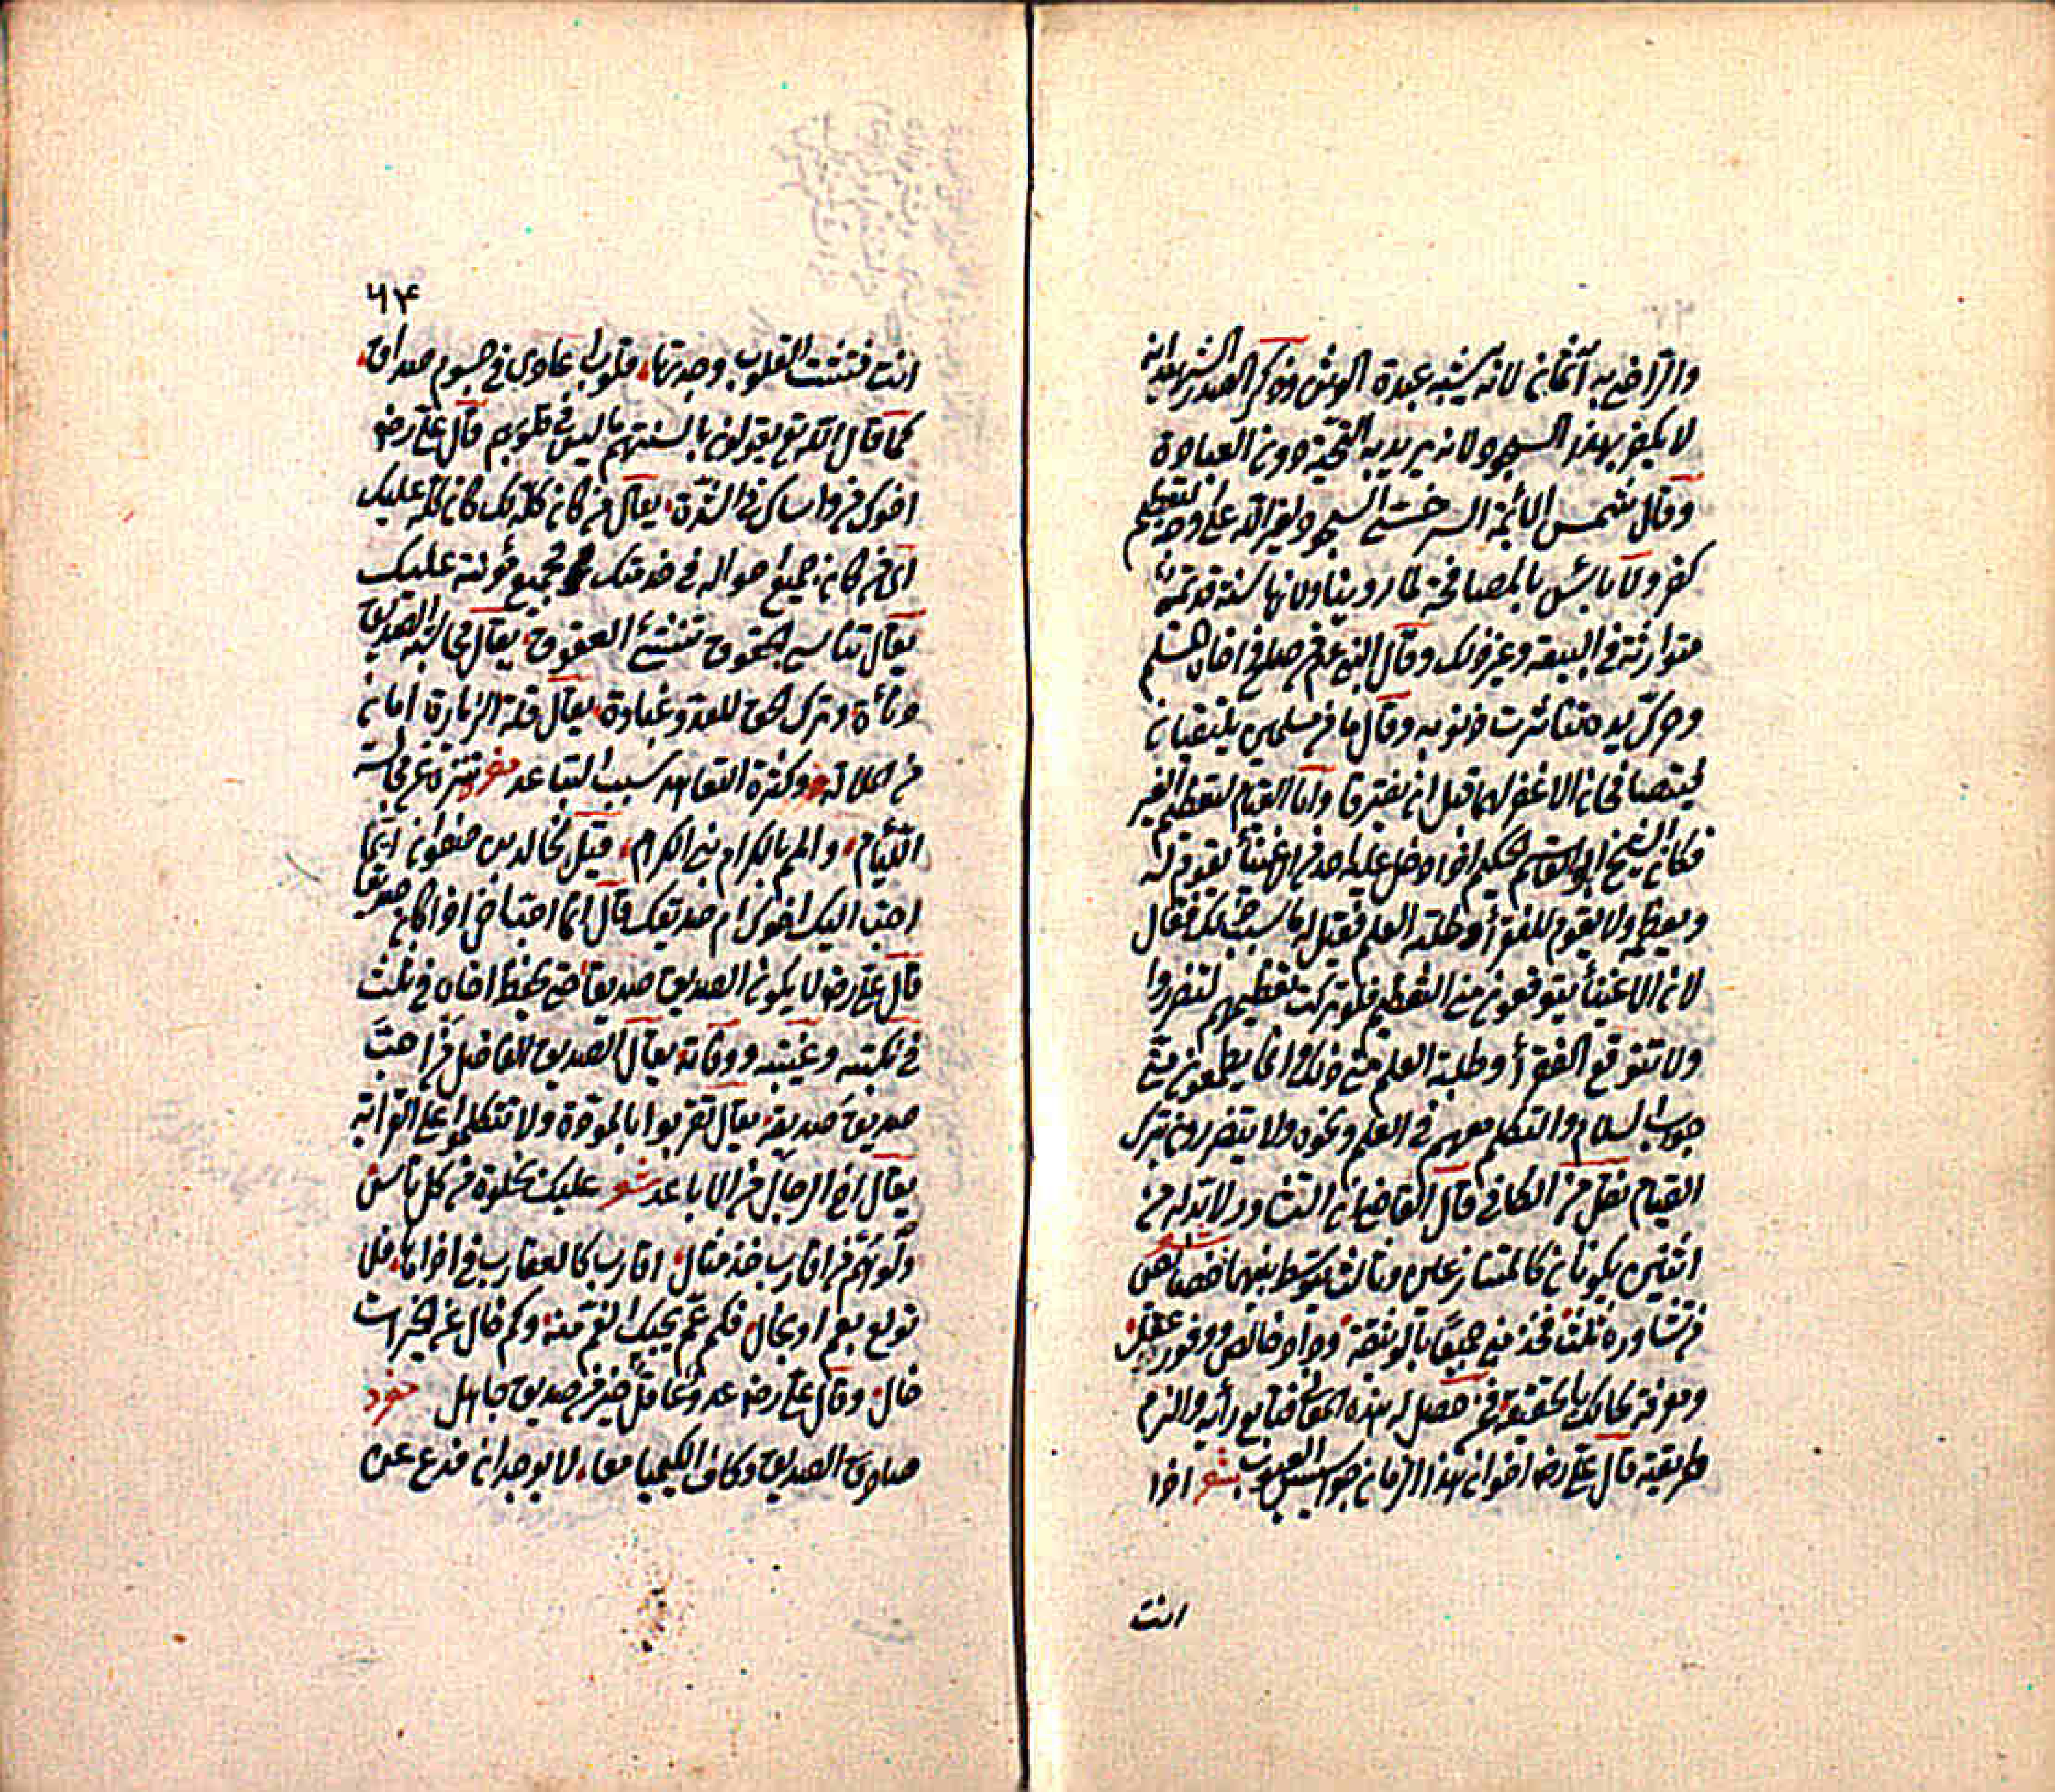 والراضى به آثمان لانه يشبه عبدة الوثن وذكر الصدر الشهيد انه
لا يكفر بهذا السجود لانه يريد به التحية دون العبادة
وقال شمس الائمة السرخسى السجود لغير الله على وجه التعظيم
كفر ولا بأس بالمصافحة لما روينا ولانها سنة قديمة
متوارثة فى البيعة وغير ذلك وقال النبى عم من صافح اخاه المسلم
وحرك يده تناثرت ذنوبه وقال ما من مسلمين يلتقيان
فيتصافحان الا غفر لهما قبل ان يفترقا واما القيام لتعظيم الغير
فكان الشيخ ابو القاسم الحكيم اذا دخل عليه احد من الاغنيأ يقوم له
ويعظمه ولا يقوم للفقرأ وطلبة العلم فقيل له ما سبب ذلك فقال
لان الاغنيأ يتوقعون منى التعظيم فلو تركت تعظيمهم لتضرروا
ولا تتوقع الفقرأ وطلبة العلم منى ذلك وانما يطمعون منى
جواب السلام والتكلم معهم فى العلم ونحوه ولا يتضررون بترك
القيام نقل من الكافى قال القاضيان التشاور لا بد له من
اثنين يكونان كالمتنازعين وثالث يتوسط بينهما شعر خصائص
من تشاوره ثلث فخذ منى جميعا بالوثيقة وداد خالص ووفور عقل
ومعرفة بحالك بالحقيقة فمن حصل له هذه المعانى فتابع رأيه والزم
طريقته قال على رض اخوان هذا الزمان جواسيس العيوب شعر اذا
انت
٦٤
انت فتشت القلوب وجدتها قلوب اعادى فى جسوم صداق
كما قال الله تع يقولون بالسنتهم ما ليس فى قلوبهم قال على رض
اخوك من واساك فى الشدة يقال من كان كله لك كان كله عليك
اى من كان جميع احواله فى خدمتك فجميع مؤنته عليك
يقال تناسى الحقوق تنشئ العقوق يقال مجانبة الصديق
دنائة وترك الحق للعدو غباوة يقال قلة الزيارة امان
من الملالة وكثرة التعاهد سبب التباعد شعر تنزه عن مجالسة
اللئام والمم بالكرام بنى الكرام قيل لخالد بن صفوان ايما
احب اليك اخوك ام صديقك قال انما احب اخى اذا كان صديقا
قال على رض لا يكون الصديق صديقا حتى يحفظ اخاه فى ثلث
فى نكبته وغيبته ووفاته يقال الصديق الفاضل من احب
صديق صديقه يقال تقربوا بالمودة ولا تتكلموا على القرابة
يقال اخ الرجال من الاباعد شعر عليك بخلوة من كل ناس
ولو هم من اقارب خذ مثال اقارب كالعقارب فى اذاها فلا
تولع بعم او بخال فكم عم يجيك الغم منه وكم خال عن الخيرات
خال وقال على رض عدو عاقل خير من صديق جاهل
صادق الصديق وكاف الكيميا معا لا يوجدان فدع عن